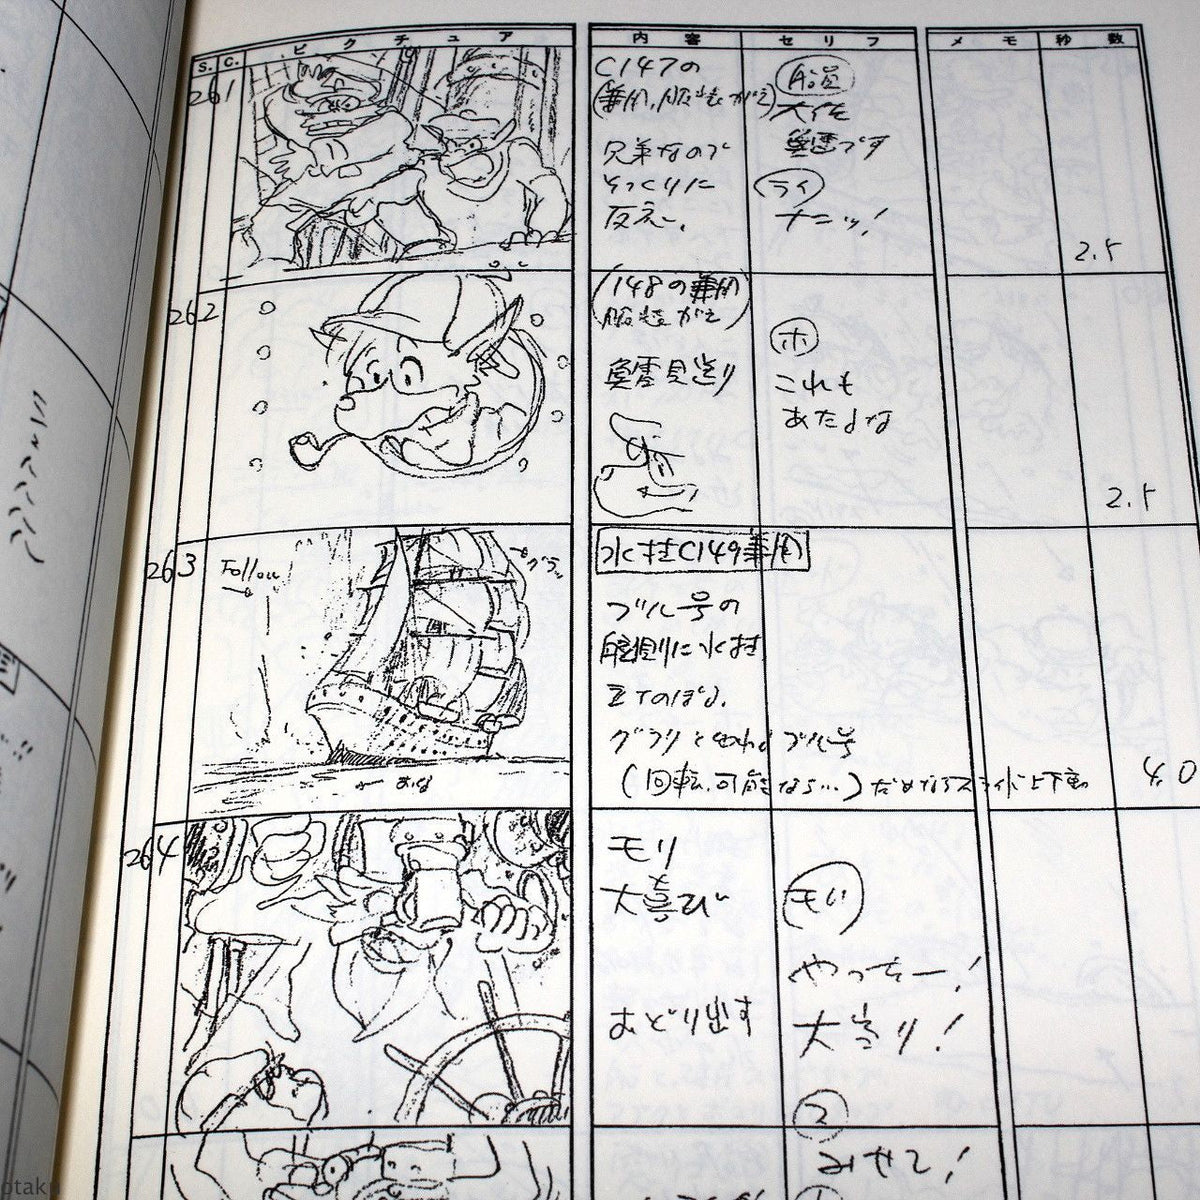 S. C. ピクチュア 内容 セリフ メモ 秒数
261
C147の
(兼用、服装がえ)
兄弟なので
そっくりに
反応。
船員
大佐
魚雷です
ライ
ナニッ!
2.5
262
(148の兼用
服装がえ)
魚雷見送り
ホ
これも
あたよな
2.5
263
Follow
グラッ
水柱C149兼用
ブル号の
船側に水柱
立てのぼる。
グラリと ブル号
(回転、可能なら…)だめならスライド上下動
4.0
264
モリ
大喜び
おどり出す
モリ
やったー!
大当り!
マ
みせて!
otaku